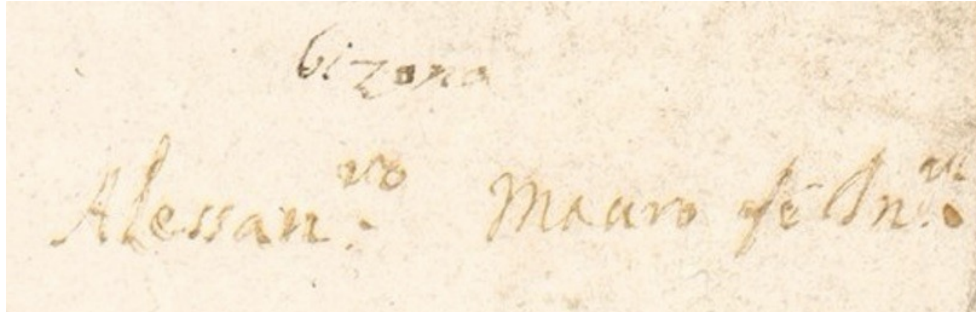 bizona
Alessan.ro Mauro fe In.